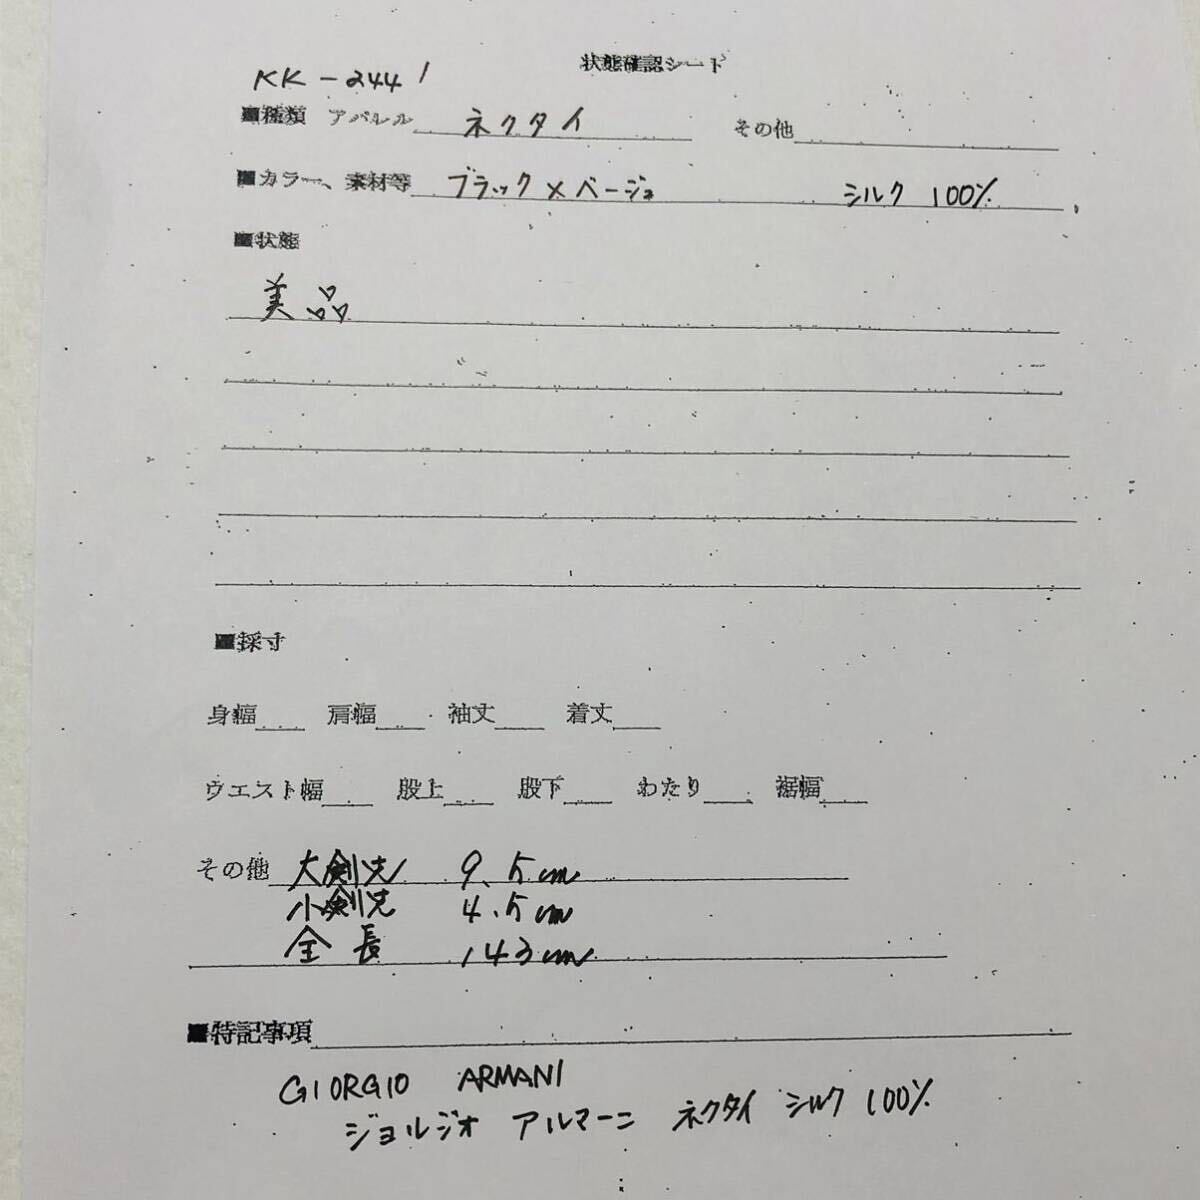 状態確認シート
KK-2441
■種類 アパレル ネクタイ その他
■カラー、素材等 ブラック×ベージュ シルク 100%
■状態
美品
■採寸
身幅 肩幅 袖丈 着丈
ウエスト幅 股上 股下 わたり 裾幅
その他 大剣先 9.5cm
小剣先 4.5cm
全長 143cm
■特記事項
GIORGIO ARMANI
ジョルジオ アルマーニ ネクタイ シルク 100%